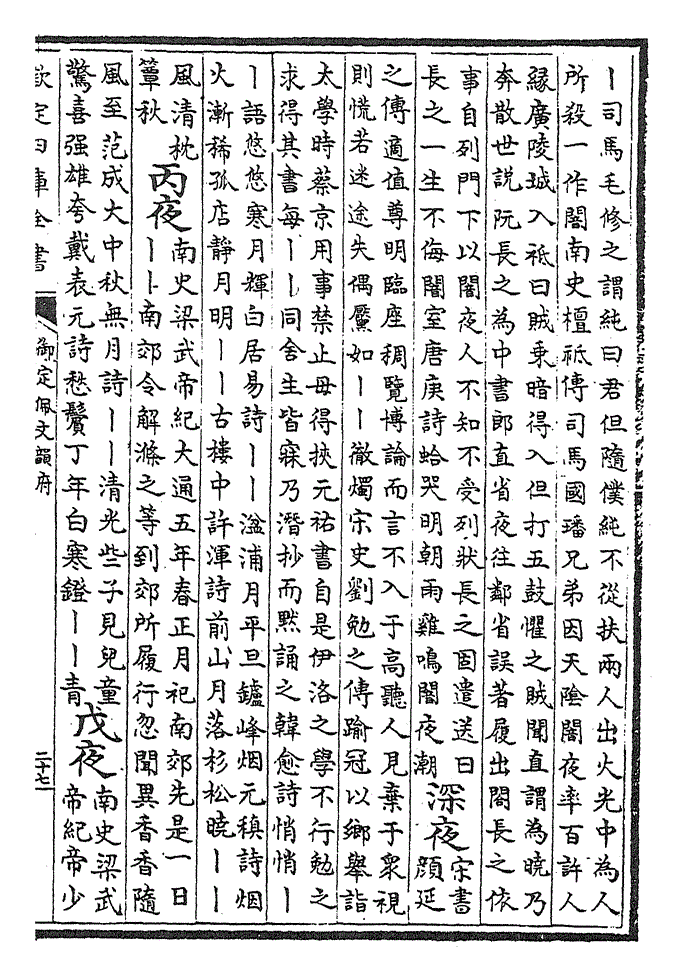 丨司馬毛修之謂純曰君但隨僕純不從扶兩人出火光中為人
所殺一作闇南史檀祗傳司馬國璠兄弟因天陰闇夜率百許人
縁廣陵城入祗曰賊乗暗得入但打五鼓懼之賊聞直謂為曉乃
奔散世説阮長之為中書郎直省夜往鄰省誤著履出閤長之依
事自列門下以闇夜人不知不受列狀長之固遣送曰
長之一生不侮闇室唐庚詩蛤哭明朝雨雞鳴闇夜潮
深夜
宋書
顔延
之傳適值尊明臨座稠覽博論而言不入于高聽人見棄于衆視
則慌若迷途失偶黶如丨丨徹燭宋史劉勉之傳踰冠以鄉舉詣
太學時蔡京用事禁止毋得挾元祐書自是伊洛之學不行勉之
求得其書每丨丨同舍生皆寐乃潛抄而默誦之韓愈詩悄悄丨
丨語悠悠寒月輝白居易詩丨丨湓浦月平旦鑪峰烟元稹詩烟
火漸稀孤店靜月明丨丨古樓中許渾詩前山月落杉松曉丨丨
風清枕
簟秋
丙夜
南史梁武帝紀大通五年春正月祀南郊先是一日
丨丨南郊令解滌之等到郊所履行忽聞異香香隨
風至范成大中秋無月詩丨丨清光些子見兒童
驚喜强雄夸戴表元詩愁鬢丁年白寒鐙丨丨青
戊夜
南史梁武
帝紀帝少
欽定四庫全書
御定佩文韻府
二十七